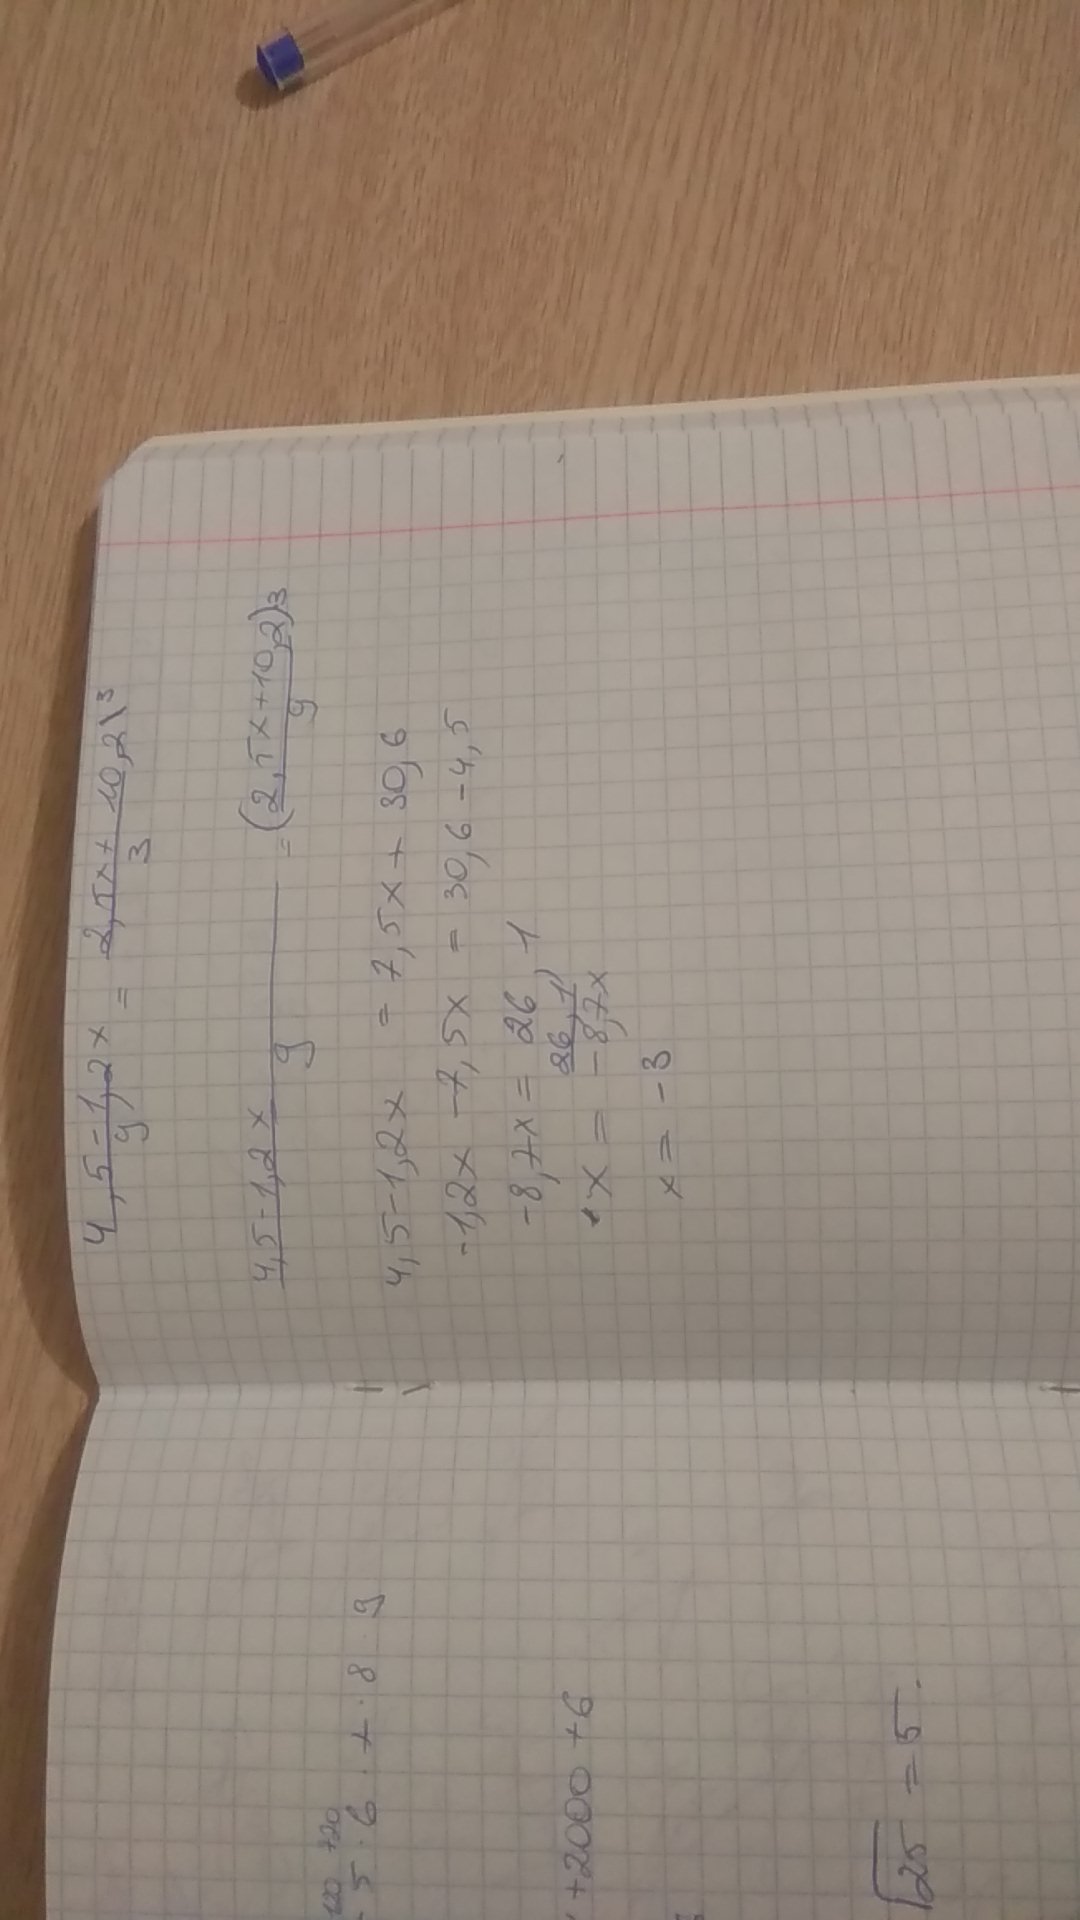 4,5-1,2x/9 = 2,5x+10,2\³/3
4,5-1,2x/9 = (2,5x+10,2)3/9
4,5-1,2x = 7,5x+30,6
-1,2x-7,5x = 30,6-4,5
-8,7x = 26,1
x = 26,1/-8,7x
x = -3
120 720
5·6·7·8·9
+2000+6
√25 = 5.